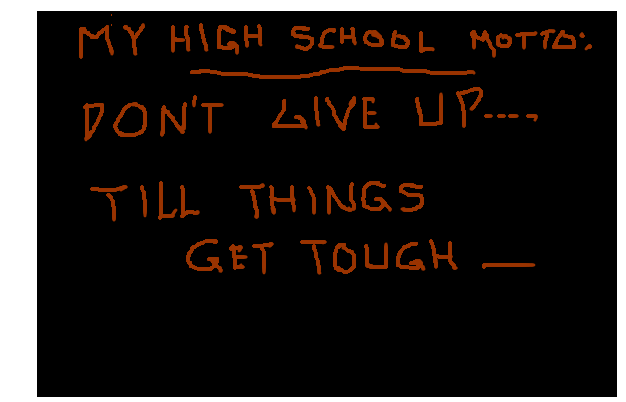 MY HIGH SCHOOL MOTTO:
DON'T GIVE UP----,
TILL THINGS
GET TOUGH —